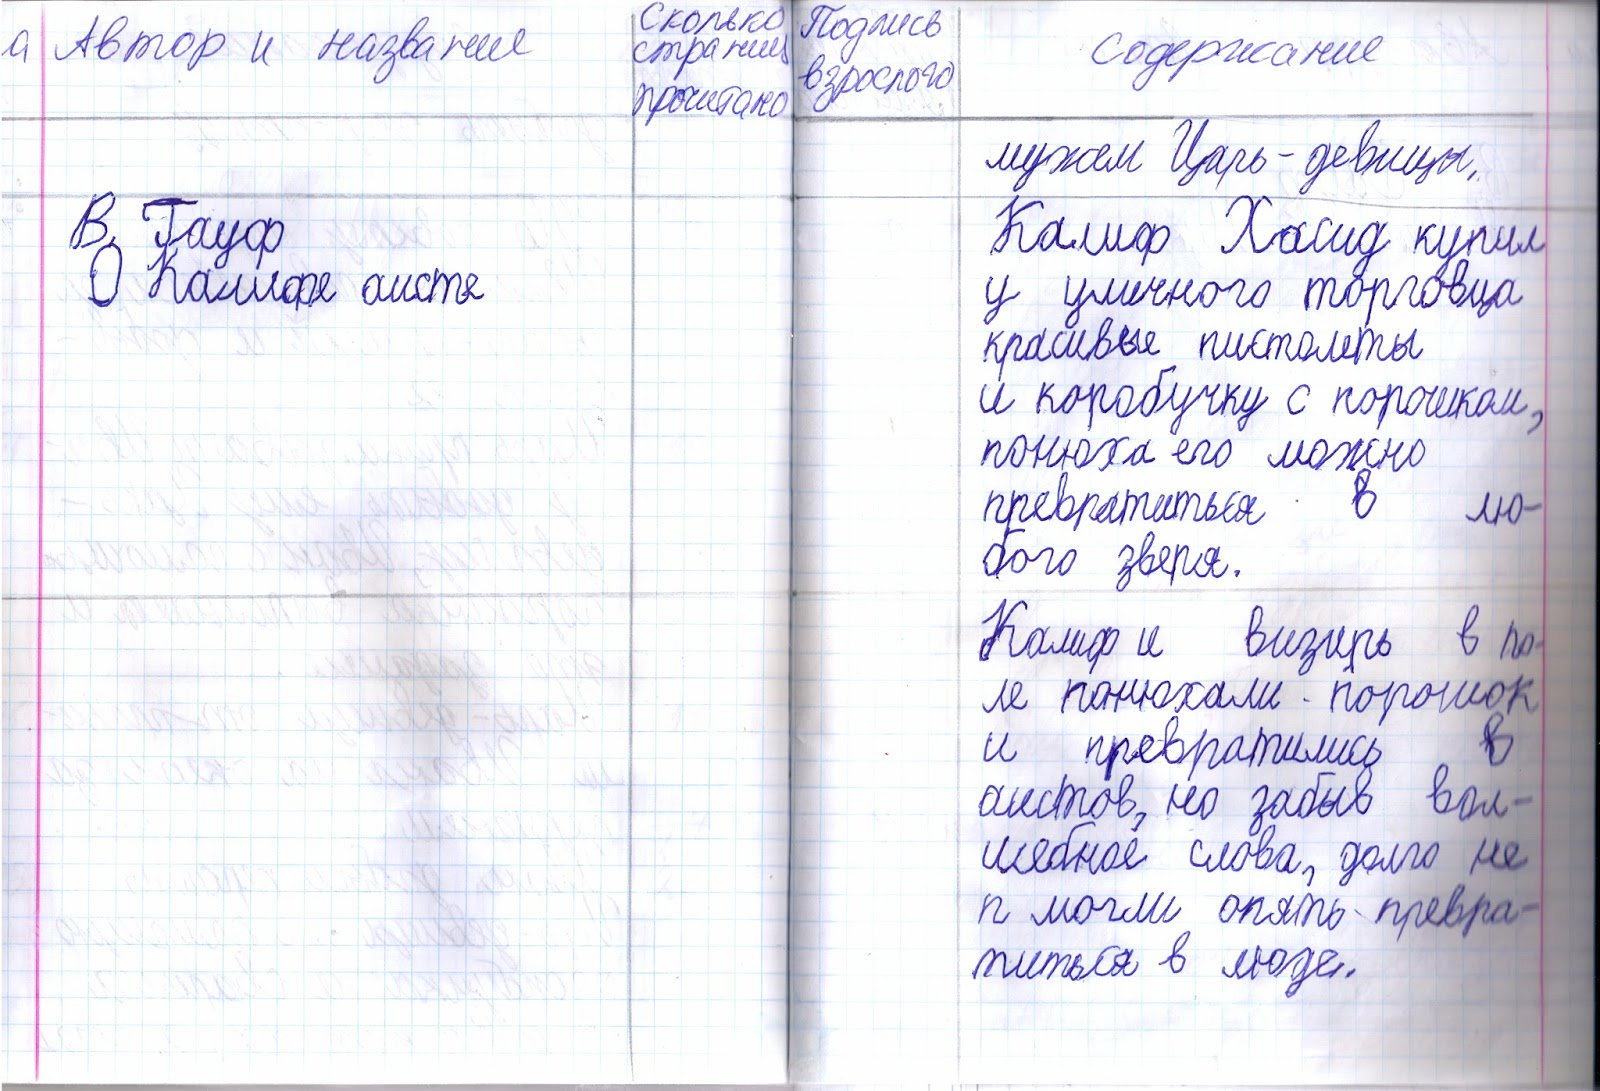 а Автор и название
Сколько
страниц
прочитано
Подпись
взрослого
содержание
мужем Царь-девицы.
В. Гауф
О Калифе аисте
Калиф Хасид купил
у уличного торговца
красивые пистолеты
и коробучку с порошком,
понюха его можно
превратиться в лю-
бого зверя.
Калиф и визирь в по-
ле понюхали порошок
и превратились в
аистов, но забыв вол-
шебное слова, долго не
п могли опять превра-
титься в людей.